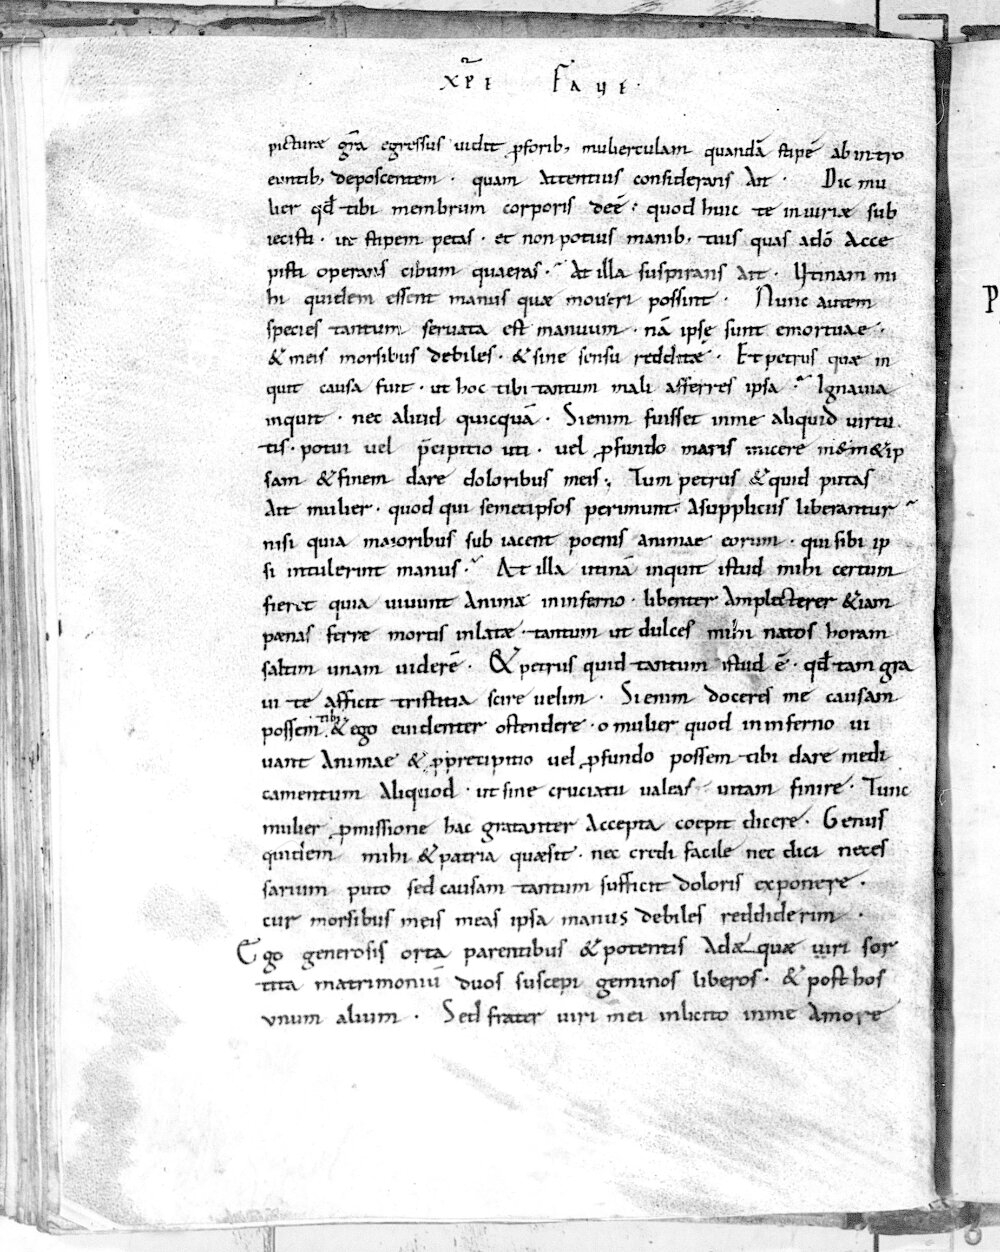 xp̅i faui·
picturæ gr̅a egressus uidit ꝓforib; mulierculam quandā stipē ab intro
euntib; deposcentem · quam attentius considerans ait · Dic mu
lier qđ tibi membrum corporis deē · quod huic te iniuriæ sub
iecisti · ut stipem petas · et non potius manib; tuis quas a dō acce
pisti operans cibum quaeras · At illa suspirans ait · Utinam mi
hi quidem essent manus quæ moueri possint · Nunc autem
species tantum seruata est manuum · nā ipsę sunt emortuae ·
& meis morsibus debiles · & sine sensu redditæ · Et petrus quæ in
quit causa fuit · ut hoc tibi tantum mali afferres ipsa · Ignauia
inquit · nec aliud quicquā · Si enim fuisset in me aliquid uirtu
tis · potui uel p̄cipitio uti · uel ꝓfundo maris iacere memet ip
sam & finem dare doloribus meis · Tum petrus & quid putas
ait mulier · quod qui semetipsos perimunt · a suppliciis liberantur
nisi quia maioribus sub iacent poenis animae eorum · qui sibi ip
si intulerint manus · At illa utinā inquit istud mihi certum
fieret quia uiuunt animæ in inferno · libenter amplecterer & iam
pænas ferre mortis inlatæ · tantum ut dulces mihi natos horam
saltim unam uiderē · & petrus quid tantum istud ē · qđ tam gra
ui te afficit tristitia scire uelim · Si enim doceres me causam
possem tibi & ego euidenter ostendere · o mulier quod in inferno ui
uant animae & ꝓ precipitio uel ꝓfundo possem tibi dare medi
camentum aliquod · ut sine cruciatu ualeas uitam finire · Tunc
mulier ꝓmissione hac gratanter accepta coepit dicere · Genus
quidem mihi & patria quæsit · nec credi facile nec dici neces
sarium puto sed causam tantum sufficit doloris exponere ·
cur morsibus meis meas ipsa manus debiles reddiderim ·
Ego generosis orta parentibus & potentis adæquæ uiri sor
tita matrimoniū duos suscepi geminos liberos · & post hos
unum alium · Sed frater uiri mei inlicito in me amore